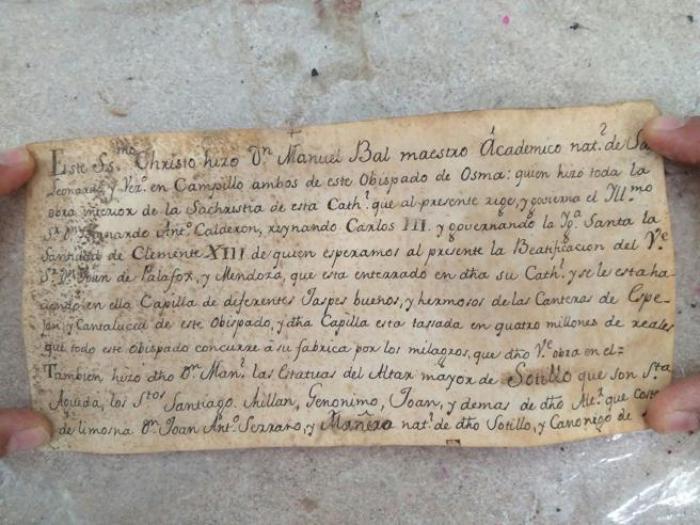 Este SSmo Christo hizo Dn Manuel Bal maestro Academico nat.l de Sn
Leonardo, y Vez.o en Campillo ambos de este Obispado de Osma: quien hizó toda la
obra interior de la Sachristia de esta Cath.l que al presente rige, y governa el Ill.mo
Sr. Dn Bernardo Ant.o Calderon, reynando Carlos III. y governando la Yg.a Santa la
Santidad de Clemente XIII. de quien esperamos al presente la Beatificacion del V.e
Sr. Dn Juan de Palafox, y Mendoza, que esta enterrado en dha su Cath.l y se le esta ha-
ciendo en ella Capilla de diferentes Jaspes buenos, y hermosos de las Canteras de Espe-
jon, y Cantalucia de este Obispado, y dha Capilla esta tassada en quatro millones de reales
que todo este obispado concurre á su fabrica por los milagros, que dho V.e obra en el=
Tambien hizó dho Dn Man.l las Estatuas del Altar mayor de Sotillo que son Sta
Agueda, los Stos Santiago, Millan, Geronimo, Joan, y demas de dho que
de limosna Dn Joan Ant.o Serrano, y Mañero nat.l de dho Sotillo, y Canonigo de